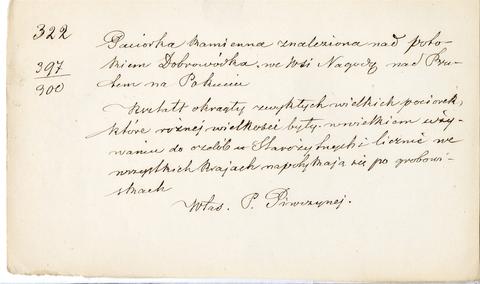 322
397
900
Paciorka kamienna znaleziona nad poto-
kiem Dobrowódka. we Wsi Naguzy nad Pru-
tem na Pokuciu
Kształt okrągły zwykłych wielkich paciorek,
które różnej wielkości były w wielkiem uży-
waniu do ozdób w Starożytności i licznie we
wszystkich krajach napotykają się po grobowi-
skach
Włas. P.